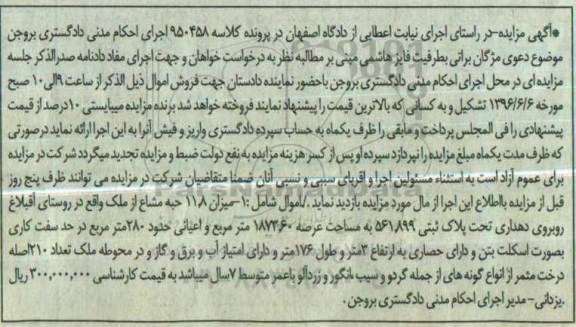 ●آگهی مزایده-در راستای اجرای نیابت اعطایی از دادگاه اصفهان در پرونده کلاسه ۹۵۰۴۵۸ اجرای احکام مدنی دادگستری بروجن
موضوع دعوی مژگان براتی بطرفیت فایز هاشمی مبنی بر مطالبه نظر به درخواست خواهان و جهت اجرای مفاد دادنامه صدرالذکر جلسه
مزایده ای در محل اجرای احکام مدنی دادگستری بروجن باحضور نماینده دادستان جهت فروش اموال ذیل الذکر از ساعت ۹الی ۱۰ صبح
مورخه ۱۳۹۶/۶/۶ تشکیل و به کسانی که بالاترین قیمت را پیشنهاد نمایند فروخته خواهد شد برنده مزایده میبایستی ۱۰درصد از قیمت
پیشنهادی را فی المجلس پرداخت و مابقی را ظرف یکماه به حساب سپرده دادگستری واریز و فیش آنرا به این اجرا ارائه نماید درصورتی
که ظرف مدت یکماه مبلغ مزایده را نپردازد سپرده او پس از کسر هزینه مزایده به نفع دولت ضبط و مزایده تجدید میگردد شرکت در مزایده
برای عموم آزاد است به استثناء مسئولین اجرا و اقربای سببی و نسبی آنان ضمنا متقاضیان شرکت در مزایده می توانند ظرف پنج روز
قبل از مزایده بااطلاع این اجرا از مال مورد مزایده بازدید نماید ./اموال شامل :۱-میزان ۱۱.۸ حبه مشاع از ملک واقع در روستای آقبلاغ
روبروی دهداری تحت پلاک ثبتی ۵۶۱،۸۹۹ به مساحت عرصه ۱۸۷۳،۶۰ متر مربع و اعیانی حدود ۲۸۰متر مربع در حد سفت کاری
بصورت اسکلت بتن و دارای حصاری به ارتفاع ۳متر و طول ۱۷۶متر و دارای امتیاز آب و برق و گاز و در محوطه ملک تعداد ۲۱۰اصله
درخت مثمر از انواع گونه های از جمله گردو و سیب انگور و زردآلو باعمر متوسط ۷سال میباشد به قیمت کارشناسی ۳۰۰،۰۰۰،۰۰۰ ریال
.یزدانی-مدیر اجرای احکام مدنی دادگستری بروجن.